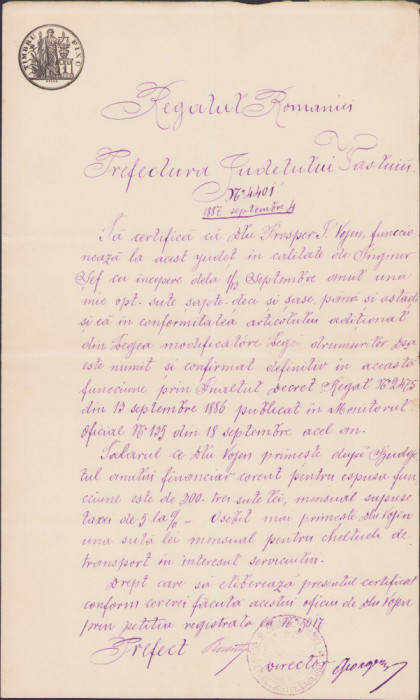 TIMBRU FIX
Regatul Romaniei
Prefectura Judetului Vasluiu
No 4401
188 septembre 4
Să certifică că Dlu Prosper I. Vojen, funcio-
nează la acest judet in calitate de Inginer
Sef cu incepere dela 1/13 Septembre anul una
mie opt-sute sapte-deci si sase, pana si astadi
si că in conformitatea articolului aditional
din Legea modificatóre Legei drumurilor Dsa
este numit si confirmat definitiv in aceasta
funcciune prin Decret Regal No 2475
din 13 septembre 1886 publicat in Monitorul
Oficial No 129 din 18 septembre acel an.
Salarul ce Dlu Vojen primeste după Budge-
tul anului financiar corent pentru espusa fun-
cciune este de 300 trei sute lei, mensual supuse
taxei de 5 la % - Osebit mai primeste Dlu Vojen
una sută lei mensual pentru cheltueli de
transport in interesul serviciului.
Drept care să eliberează presentul certificat
conform cererei făcuta acestui oficiu de Dlu Vojen
prin petitia registrata la No 7017
Prefect
Director